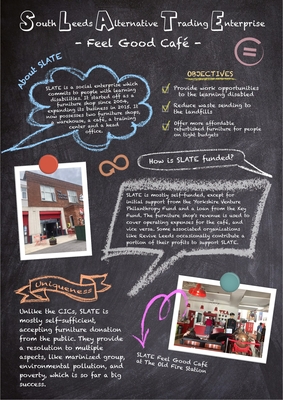 South Leeds Alternative Trading Enterprise
- Feel Good Café -
About SLATE
SLATE is a social enterprise which
commits to people with learning
disabilities. It started off as a
furniture shop since 2004,
expanding its business in 2015. It
now possesses two furniture shops,
a warehouse, a café, a training
center and a head
office.
OBJECTIVES
Provide work opportunities
to the learning disabled
Reduce waste sending to
the landfills
Offer more affordable
refurbished furniture for people
on tight budgets
How is SLATE funded?
SLATE is mostly self-funded, except for
initial support from the Yorkshire Venture
Philanthropy Fund and a loan from the Key
Fund. The furniture shop's revenue is used to
cover operating expenses for the café, and
vice versa. Some associated organisations
like Revive Leeds occasionally contribute a
portion of their profits to support SLATE.
Uniqueness
Unlike the CICs, SLATE is
mostly self-sufficient,
accepting furniture donation
from the public. They provide
a resolution to multiple
aspects, like marinised group,
environmental pollution, and
poverty, which is so far a big
success.
SLATE Feel Good Café
at The Old Fire Station